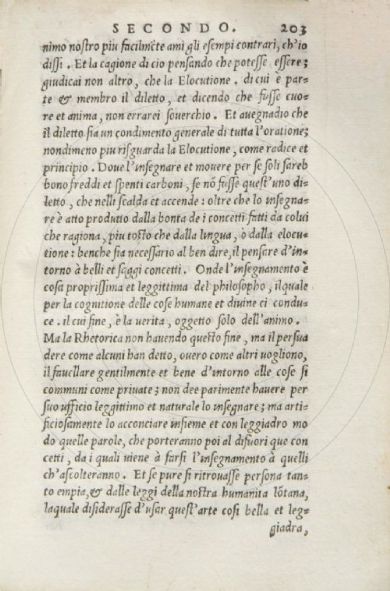 SECONDO. 203
nimo nostro piu facilmẽte ami gli esempi contrari, ch'io
dissi. Et la cagione di cio pensando che potesse essere;
giudicai non altro, che la Elocutione. di cui è par=
te & membro il diletto, et dicendo che fusse cuo=
re et anima, non errarei souerchio. Et auegnadio che
il diletto sia un condimento generale di tutta l'oratione;
nondimeno piu risguarda la Elocutione, come radice et
principio. Doue l'insegnare et mouere per se soli sareb
bono freddi et spenti carboni, se nõ fusse quest'uno di=
letto, che nelli scalda et accende: oltre che lo insegna=
re è atto produtto dalla bontà de i concetti fatti da colui
che ragiona, piu tosto che dalla lingua, ò dalla elocu=
tione: benche sia necessario al ben dire, il pensare d'in=
torno à belli et saggi concetti. Onde l'insegnamento è
cosa proprissima et leggittima del philosopho, il quale
per la cognitione delle cose humane et diuine ci condu=
ce. il cui fine, è la uerita, oggetto solo dell'animo.
Ma la Rhetorica non hauendo questo fine, ma il persua
dere come alcuni han detto, ouero come altri uogliono,
il fauellare gentilmente et bene d'intorno alle cose si
communi come priuate; non dee parimente hauere per
suo ufficio leggittimo et naturale lo insegnare; ma arti=
ficiosamente lo acconciare insieme et con leggiadro mo
do quelle parole, che porteranno poi al difuori que con
cetti, da i quali uiene à farsi l'insegnamento à quelli
ch'ascolteranno. Et se pure si ritrouasse persona tan=
to empia, & dalle leggi della nostra humanita lõtana,
laquale disiderasse d'usar quest'arte cosi bella et leg=
giadra,